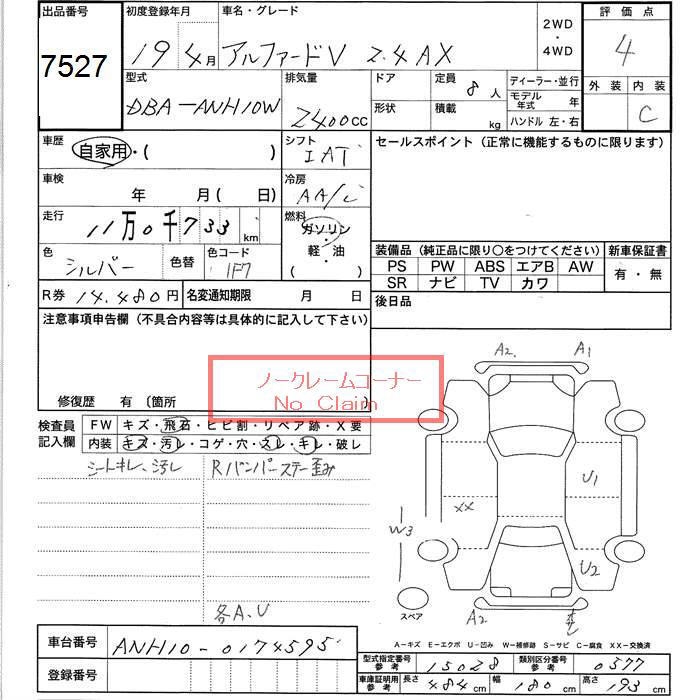 出品番号 初度登録年月 車名・グレード 2WD ・ 4WD 評価点
7527 19 4月 アルファードV 2.4 AX 4
型式 排気量 ドア 定員 8 人 ディーラー・並行 外装 内装
DBA-ANH10W 2400cc 形状 積載 kg モデル年式 年 C
ハンドル 左・右
車歴 自家用・( ) シフト IAT セールスポイント(正常に機能するものに限ります)
車検 年 月(日) 冷房 AA/C
走行 11万0千733km 燃料 ガソリン・軽・油 ( )
装備品(純正品に限り○をつけてください) 新車保証書
色 シルバー 色替 色コード 1F7
PS PW ABS エアB AW 有・無
SR ナビ TV カワ
R券 14,480円 名変通知期限 月 日 後日品
注意事項申告欄(不具合内容等は具体的に記入して下さい)
ノークレームコーナー
No Claim
修復歴 有 〔箇所 〕
検査員記入欄 FW キズ・飛石・ヒビ割・リペア跡・X要
内装 キズ・汚レ・コゲ・穴・スレ・キレ・破レ
シートキレ、汚レ Rバンパーステー歪み
各A、U
A2 A1
U1
XX
W3
U2
スペア A2
A-キズ E-エクボ U-凹み W-補修跡 S-サビ C-腐食 XX-交換済
車台番号 ANH10-0174595
登録番号
型式指定番号 参考 15028 類別区分番号 参考 0577
車庫証明用 参考 長さ 484cm 幅 180cm 高さ 193cm